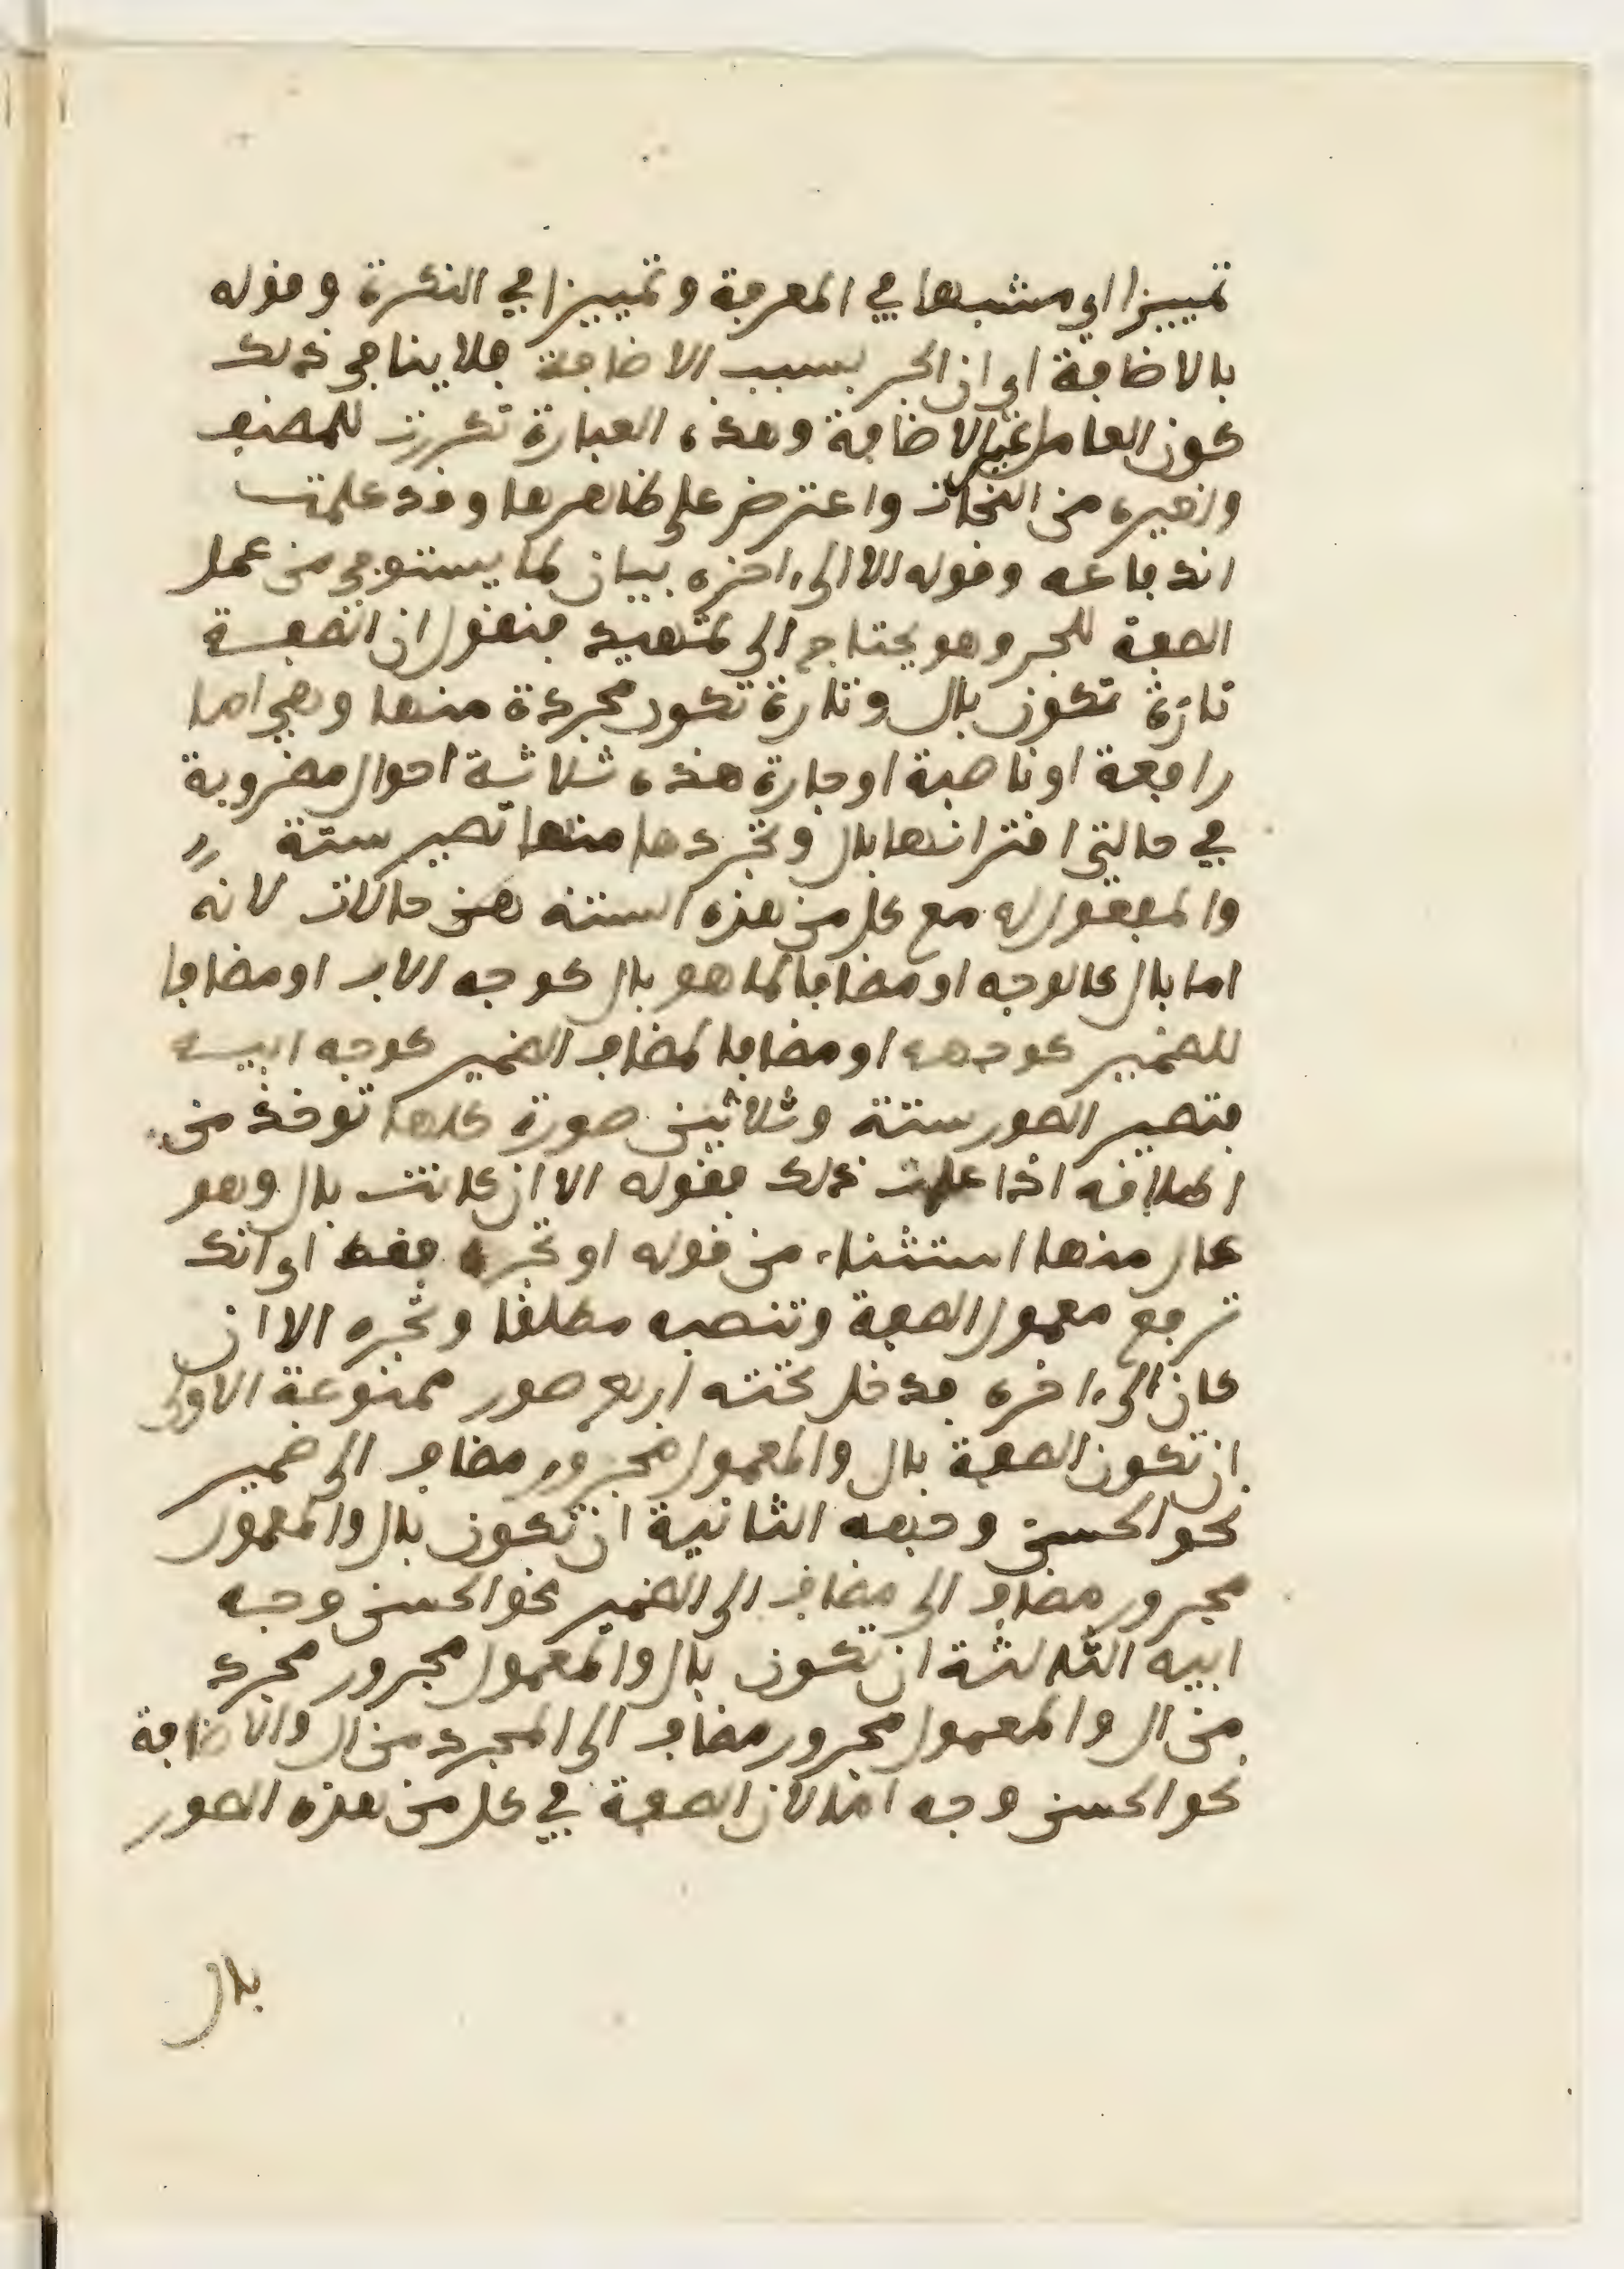 تمييزا او مشبها في المعرفة وتمييزا في النكرة وقوله
بالاضافة اي ان الجر بسبب الاضافة فلا ينافي ذلك
كون العامل غير الاضافة وهذه العبارة تكررت للمصنف
ولغيره من النحات واعترض على ظاهرها وقد علمت
اندفاعه وقوله الا الى ءاخره بيان لما يستوفي من عمل
الصفة للجر وهو يحتاج الى تمهيد فنقول ان الصفة
تارة تكون بال وتارة تكون مجردة منها وهي اما
رافعة او ناصبة او جارة هذه ثلاثة احوال مضروبة
في حالتي اقترانها بال وتجردها منها تصير ستة
والمعمول له مع كل من هذه الستة ست حالات لانه
اما بال كالوجه او مضافا لما هو بال كوجه الاب او مضافا
للضمير كوجهه او مضافا لمضاف الضمير كوجه ابيه
فتصير الصور ستة وثلاثين صورة كلها توخذ من
اطلاقه اذا علمت ذلك فقوله الا ان كانت بال وهو
عار منها استثناء من قوله او تجره فقط اي انك
ترفع معمول الصفة وتنصبه مطلقا وتجره الا ان
كان الى ءاخره فدخل تحته اربع صور ممنوعة الاولى
ان تكون الصفة بال والمعمول مجرور مضاف الى ضمير
نحو الحسن وجهه الثانية ان تكون بال والمعمول
مجرور مضاف الى مضاف الى الضمير نحو الحسن وجه
ابيه الثالثة ان تكون بال والمعمول مجرور مجرد
من ال والمعمول مجرور مضاف الى المجرد من ال والاضافة
نحو الحسن وجه اب لان الصفة في كل من هذه الصور
بال